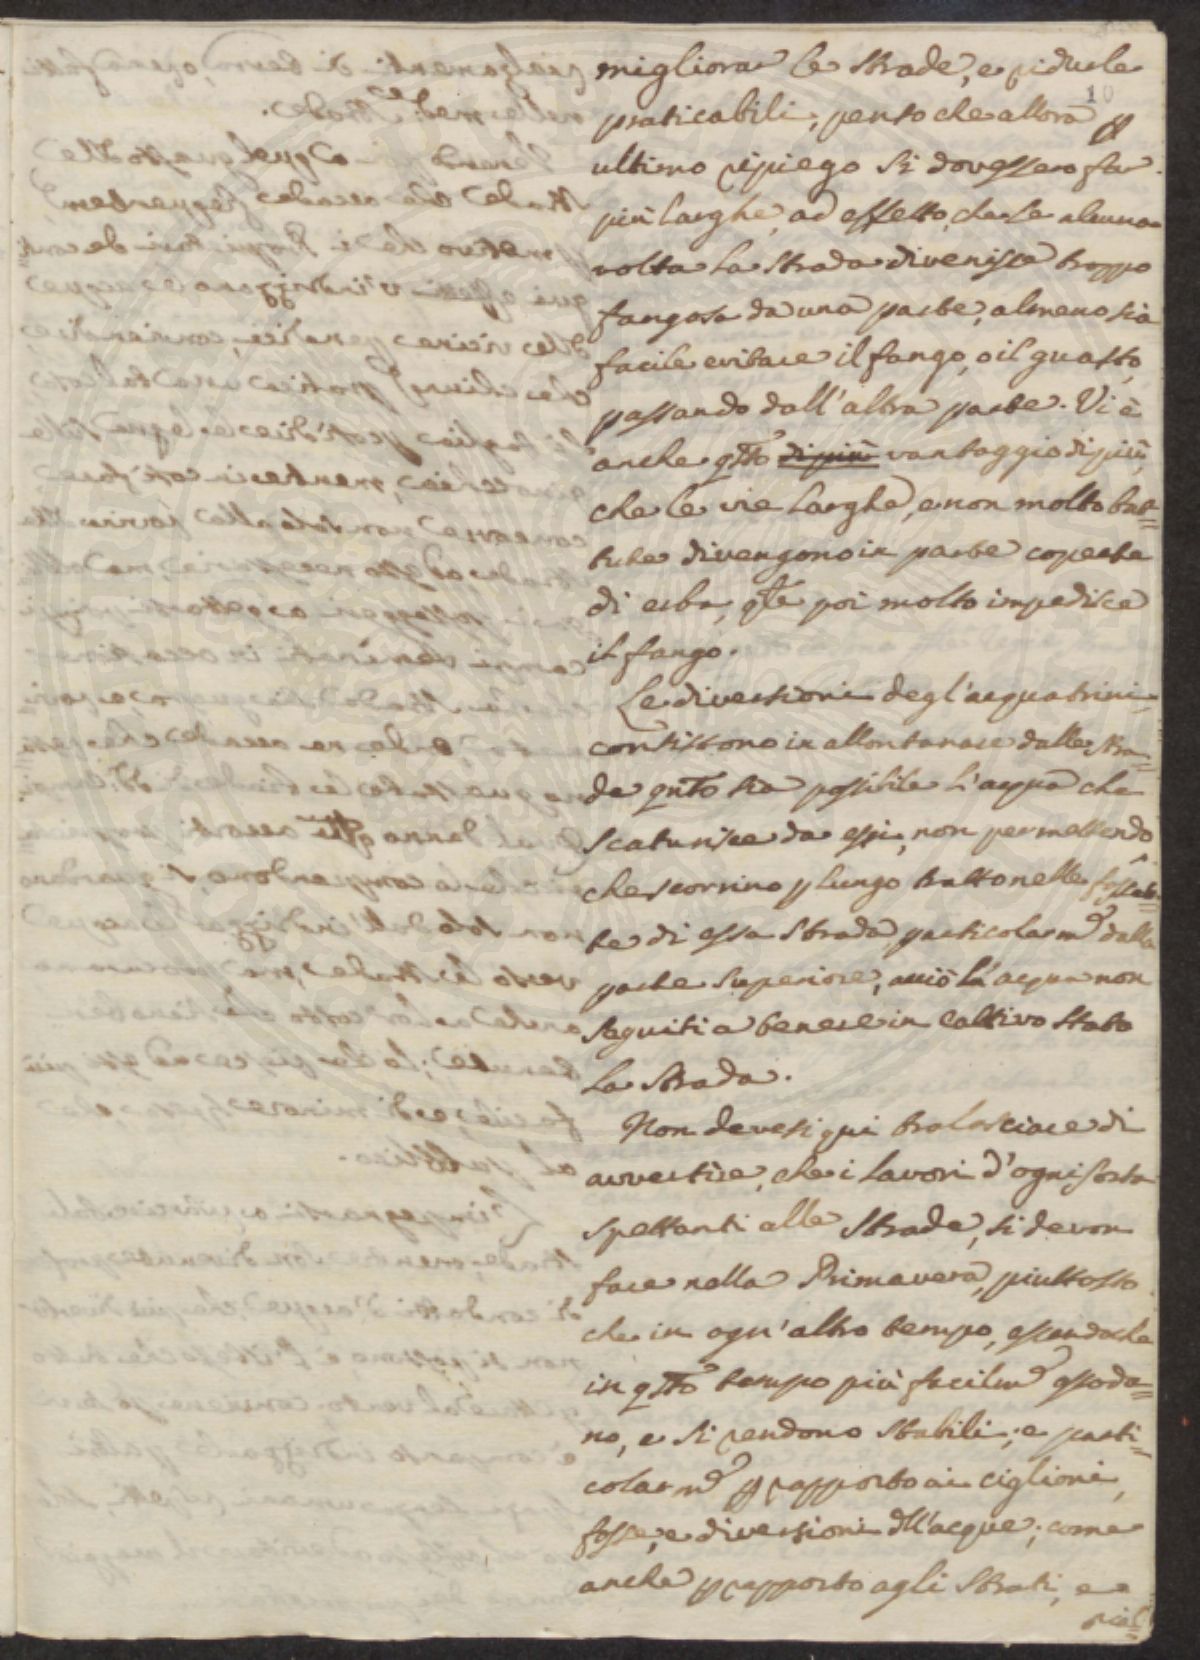 migliorar le strade, e ridurle
10
praticabili; penso che allora p
ultimo ripiego si dovessero far
più larghe, ad effetto, che se alcuna
volta la strada divenisse troppo
fangosa da una parte, almeno sia
facile evitare il fango, o il guasto,
passando dall'altra parte. Vi è
anche qsto di più vantaggio di più,
che le vie larghe, e non molto bat=
tute divengono in parte coperte
di erba, qle poi molto impedisce
il fango.
Le diversioni degl'acquatrini
consistono in allontanare dalle stra=
de qnto sia possibile l'acqua che
scaturisce da essi, non permettendo
che scorrino p lungo tratto nelle
te di essa strada, particolarmte dalla
parte superiore, acciò l'acqua non
seguiti a tenere in cattivo stato
la strada.
Non devesi qui tralasciare di
avvertire, che i lavori d'ogni sorta
spettanti alle strade, si devon
fare nella Primavera, piuttosto
che in ogn'altro tempo, essendo che
in qsto tempo più facilmte assoda=
no, e si rendono stabili; e parti=
colarmte p rapporto ai ciglioni,
fosse, e diversioni dell'acque; come
anche p rapporto agli strati, e
rial=